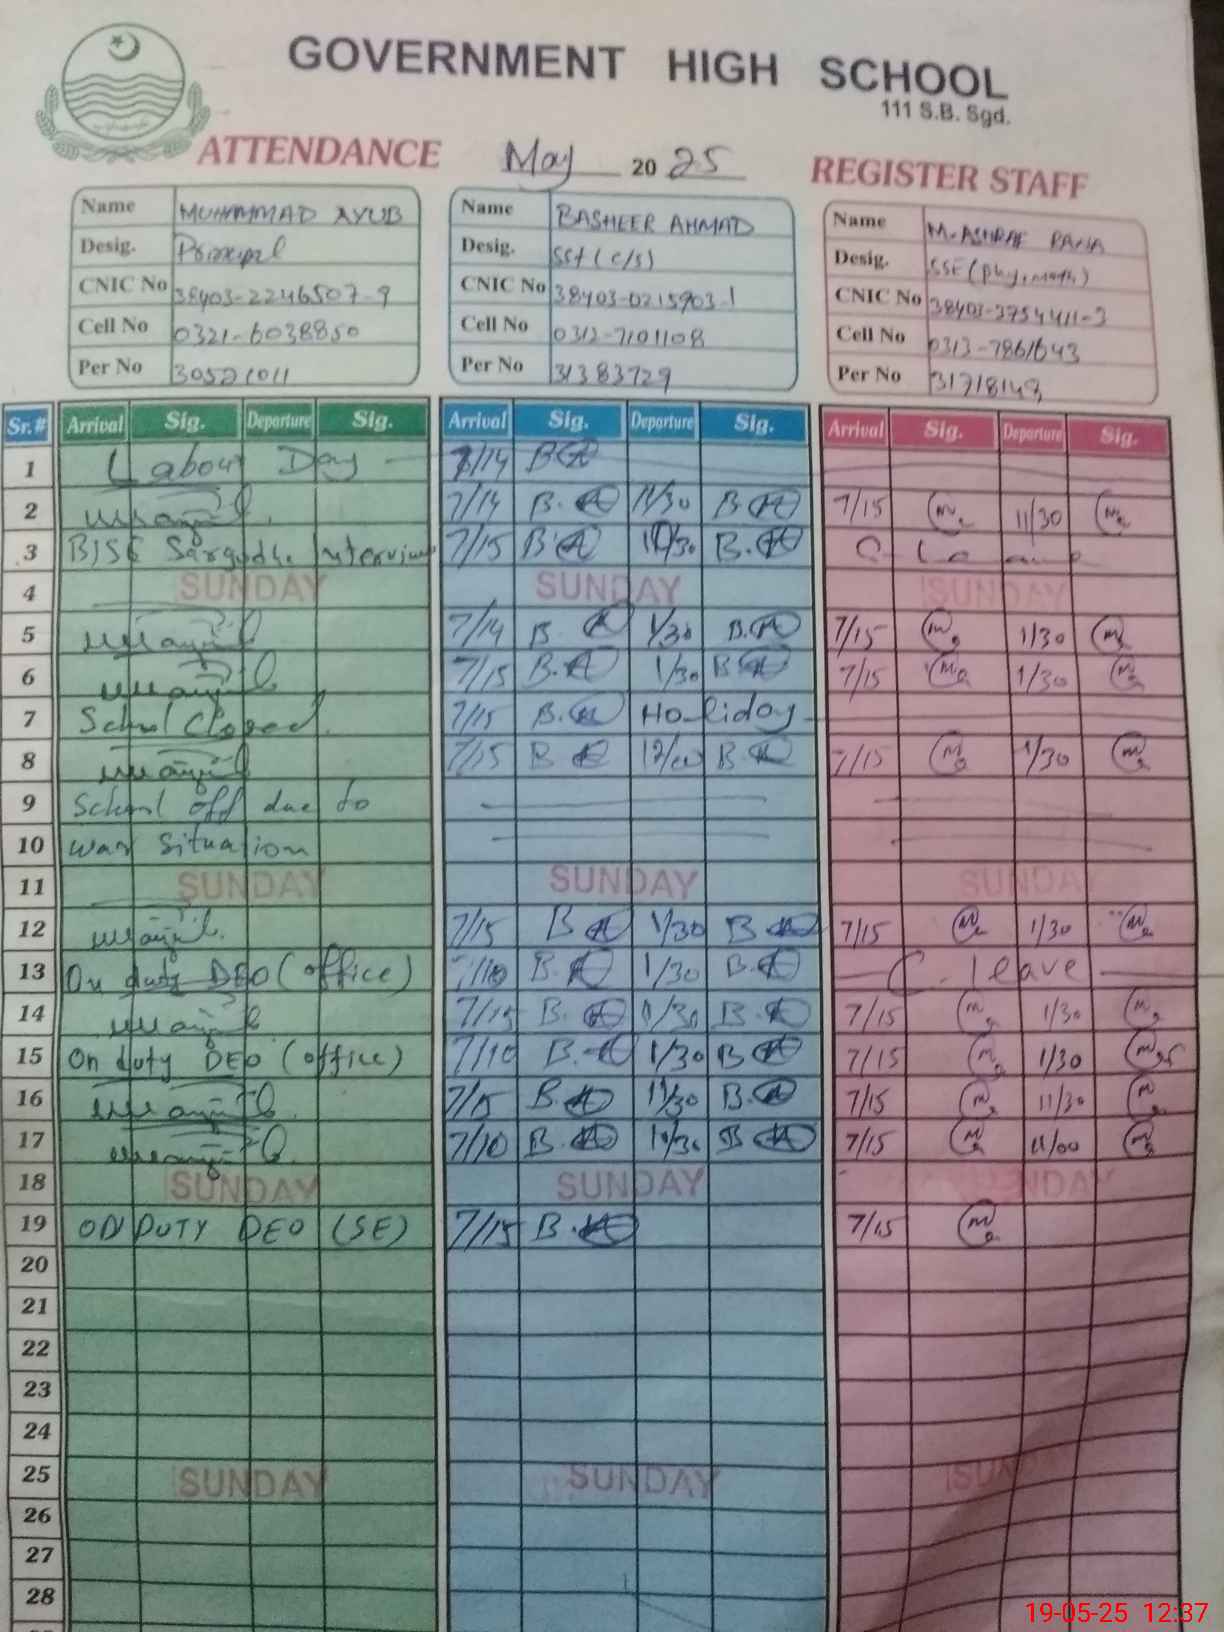 GOVERNMENT HIGH SCHOOL
111 S.B. Sgd.
ATTENDANCE May 2025 REGISTER STAFF
Name MUHAMMAD AYUB
Desig. Principal
CNIC No 38403-2246507-9
Cell No 0321-6038850
Per No 30521011
Name BASHEER AHMAD
Desig. SST (C/S)
CNIC No 38403-0215903-1
Cell No 0312-7101108
Per No 31383729
Name M. ASHRAF RANA
Desig. SSE (phy, math)
CNIC No 38403-2754411-3
Cell No 0313-7861643
Per No 31718143
Sr.# Arrival Sig. Departure Sig. Arrival Sig. Departure Sig. Arrival Sig. Departure Sig.
1 Labour Day 7/14
2 7/14 11/30 7/15 11/30
3 BISE Sargodha Interview 7/15
4 SUNDAY SUNDAY SUNDAY
5 7/14 1/30 7/15 1/30
6 7/15 1/30 7/15 1/30
7 School Closed. 7/15 Holiday
8 7/15 7/15 1/30
9 School off due to
10 war situation
11 SUNDAY SUNDAY SUNDAY
12 7/15 1/30 7/15 1/30
13 On duty DEO (office) 1/30 C. leave
14 7/15 1/30 7/15 1/30
15 On duty DEO (office) 7/10 1/30 7/15 1/30
16 7/15 11/30 7/15 11/30
17 7/10 7/15 11/00
18 SUNDAY SUNDAY SUNDAY
19 ON DUTY DEO (SE) 7/15 7/15
20
21
22
23
24
25 SUNDAY SUNDAY
26
27
28
19-05-25 12:37